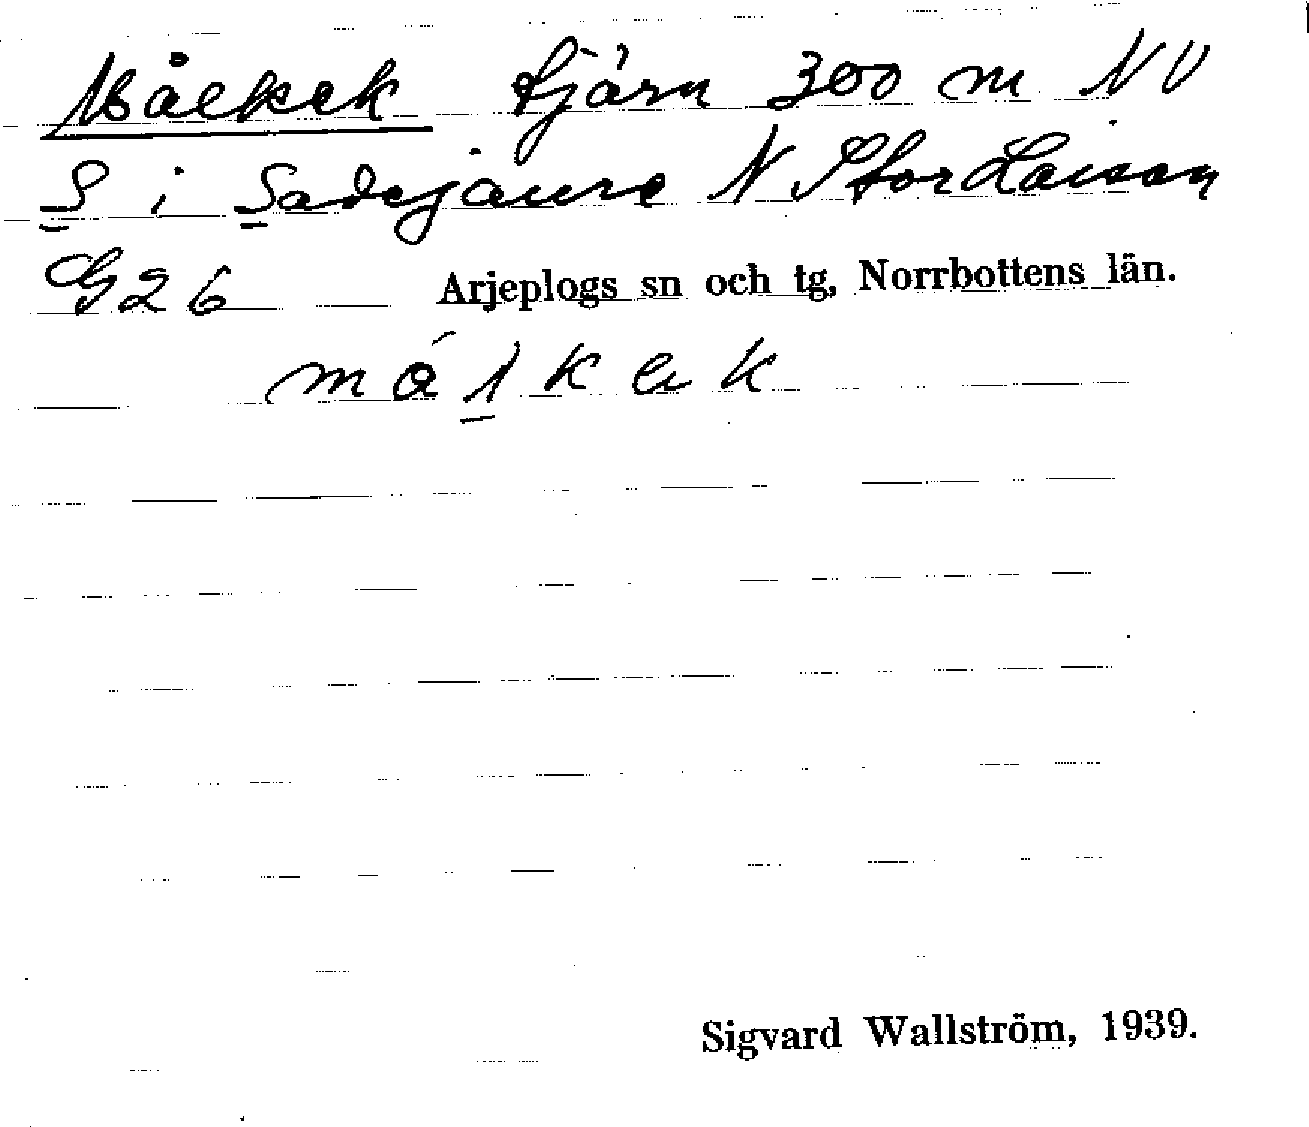 Målkek tjärn 300 m NV
S i Sadejaure N Stor Laisan
G26 Arjeplogs sn och tg, Norrbottens län.
Sigvard Wallström, 1939.